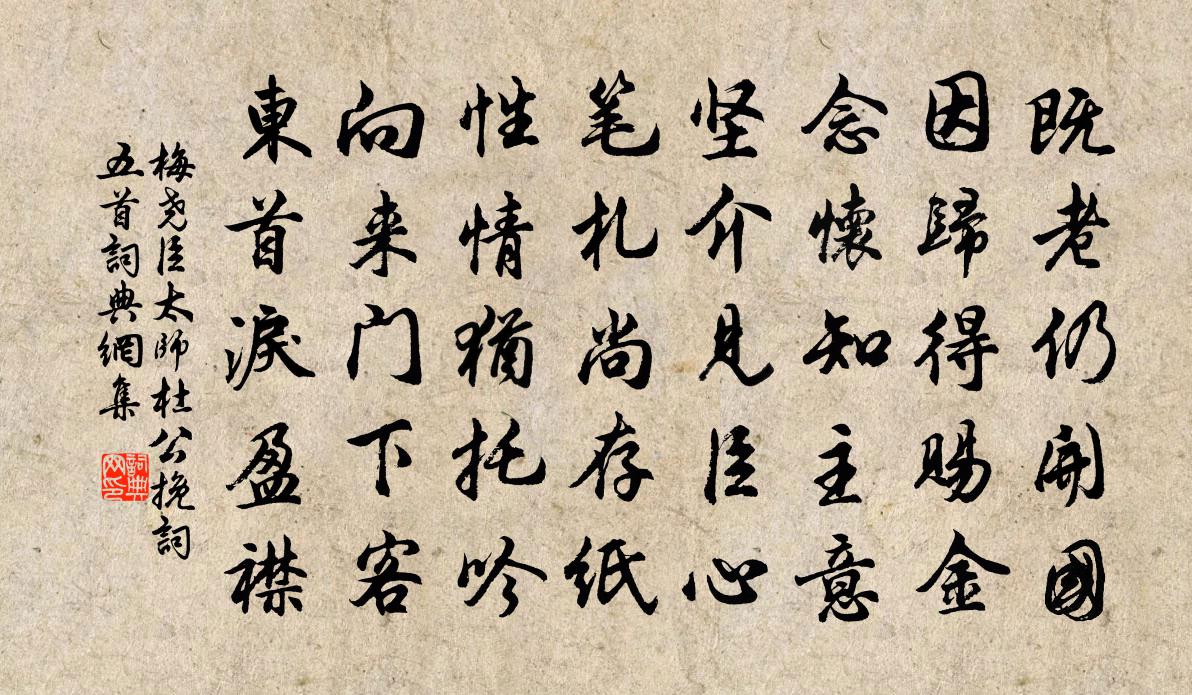 既老仍開國
因歸得賜金
念懷知主意
坚介見臣心
笔札尚存紙
性情猶托吟
向来门下客
東首淚盈襟
梅尧臣太師杜公挽詞
五首詞典網集
詞典
网印